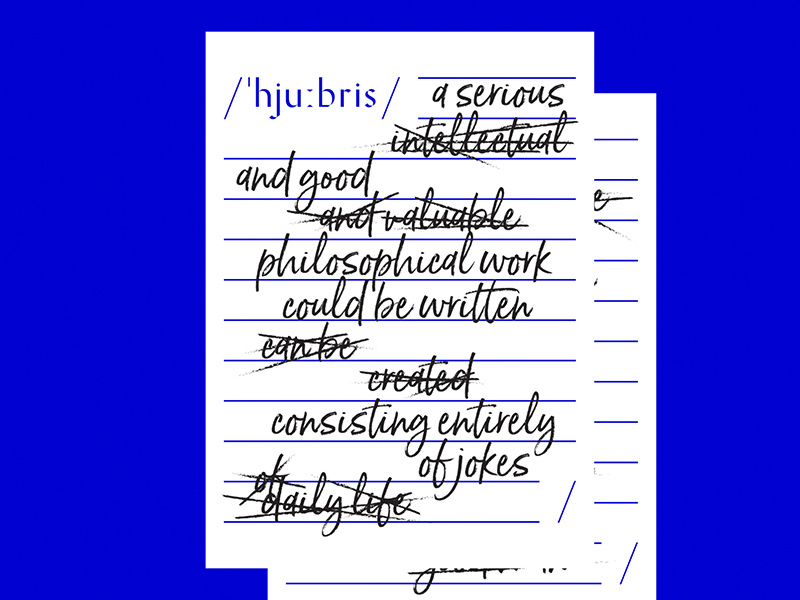 /ˈhjuːbris/ a serious
intellectual
and good
and valuable
philosophical work
could be written
can be
created
consisting entirely
of jokes
of
daily life /
e
/